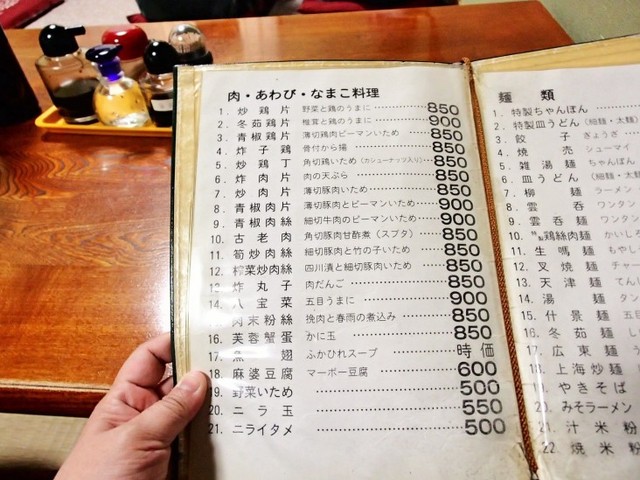 肉・あわび・なまこ料理
1. 炒鶏片 野菜と鶏のうまに 850
2. 冬茹鶏片 椎茸と鶏のうまに 900
3. 青椒鶏片 薄切鶏肉ピーマンいため 850
4. 炸子鶏 骨付から揚 850
5. 炒鶏丁 角切鶏いため(カシューナッツ入り) 850
6. 炸肉片 肉の天ぷら 850
7. 炒肉片 薄切豚肉いため 850
8. 青椒肉片 薄切豚肉とピーマンいため 900
9. 青椒肉絲 細切牛肉のピーマンいため 900
10. 古老肉 角切豚肉甘酢煮(スブタ) 850
11. 筍炒肉絲 細切豚肉と竹の子いため 850
12. 搾菜炒肉絲 四川漬と細切豚肉いため 850
13. 炸丸子 肉だんご 850
14. 八宝菜 五目うまに 900
15. 肉末粉絲 挽肉と春雨の煮込み 850
16. 芙蓉蟹蛋 かに玉 850
17. 魚翅 ふかひれスープ 時価
18. 麻婆豆腐 マーボー豆腐 600
19. 野菜いため 500
20. ニラ玉 550
21. ニライタメ 500
麺類
1. 特製ちゃんぽん
2. 特製皿うどん(細麺・太麺
3. 餃子 ぎょうざ
4. 焼売 シューマイ
5. 雑湯麺 ちゃんぽん
6. 皿うどん(細麺・太麺
7. 柳麺 ラーメン
8. 雲呑 ワンタン
9. 雲呑麺 ワンタン
10. 特製鶏絲肉麺 かいしろ
11. 生嗎麺 もやし
12. 叉焼麺 チャー
13. 天津麺 てん
14. 湯麺 タン
15. 什景麺 五目
16. 冬茹麺 し
17. 広東麺 う
18. 上海炒麺
19. やきそば
20. みそラーメン
21. 汁米粉
22. 焼米粉